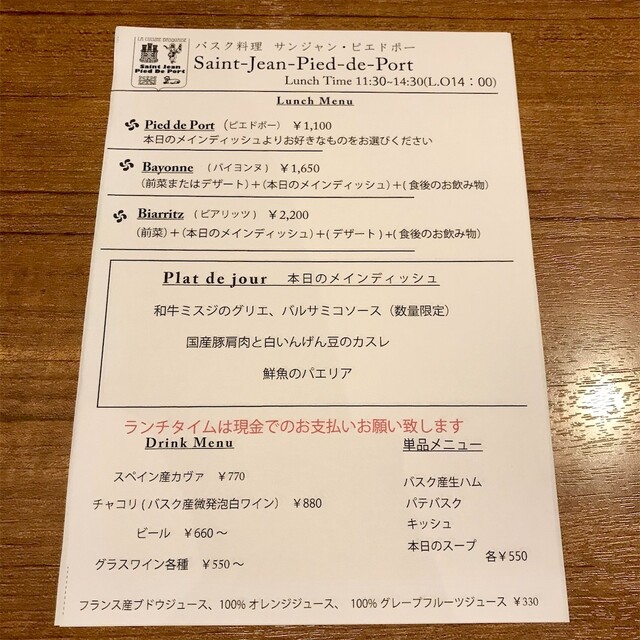 LA CUISINE BASQUAISE
Saint Jean
Pied De Port
バスク料理 サンジャン・ピエドポー
Saint-Jean-Pied-de-Port
Lunch Time 11:30~14:30(L.O14：00)
Lunch Menu
Pied de Port (ピエドポー) ￥1,100
本日のメインディッシュよりお好きなものをお選びください
Bayonne (バイヨンヌ) ￥1,650
（前菜またはデザート）＋（本日のメインディッシュ）＋( 食後のお飲み物）
Biarritz (ビアリッツ) ￥2,200
（前菜）＋（本日のメインディッシュ）＋( デザート ) +( 食後のお飲み物）
Plat de jour 本日のメインディッシュ
和牛ミスジのグリエ、バルサミコソース（数量限定）
国産豚肩肉と白いんげん豆のカスレ
鮮魚のパエリア
ランチタイムは現金でのお支払いお願い致します
Drink Menu
スペイン産カヴァ ￥770
チャコリ ( バスク産微発泡白ワイン） ￥880
ビール ￥660～
グラスワイン各種 ￥550～
単品メニュー
バスク産生ハム
パテバスク
キッシュ
本日のスープ
各￥550
フランス産ブドウジュース、100% オレンジジュース、 100% グレープフルーツジュース ￥330